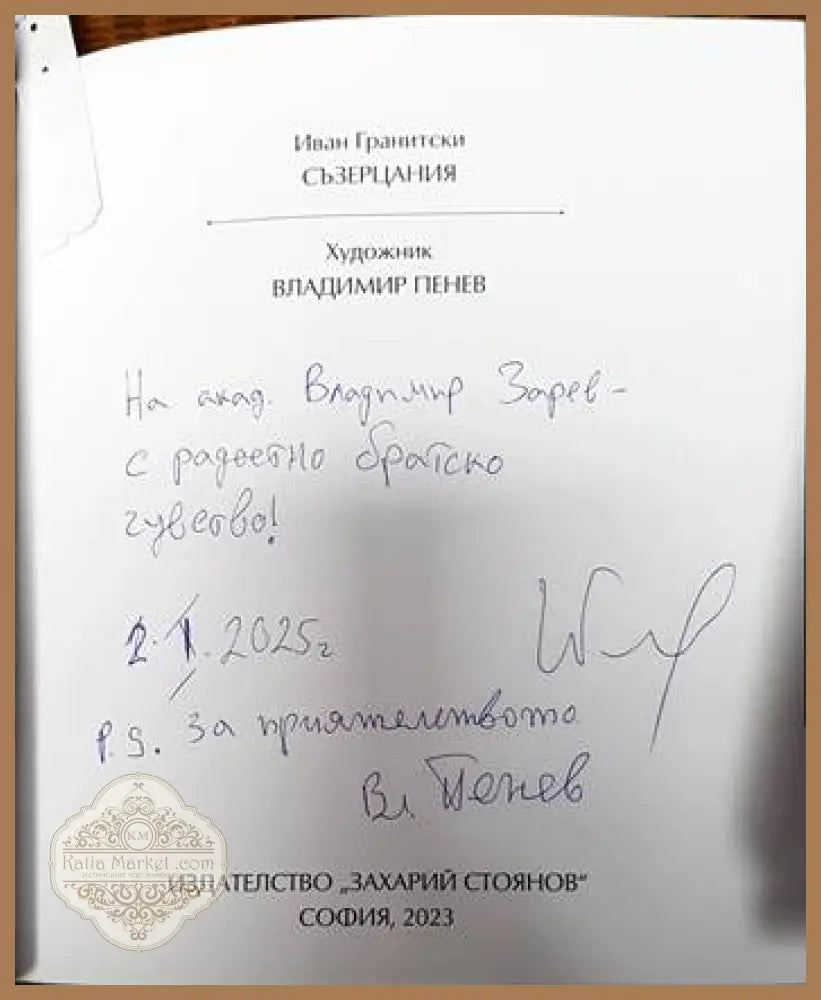 Иван Гранитски
СЪЗЕРЦАНИЯ
Художник
ВЛАДИМИР ПЕНЕВ
На акад. Владимир Зарев –
с радостно братско
чувство!
2. I. 2025г
P.S. За приятелството
Вл Пенев
KM
Katia Market .com
ИЗДАТЕЛСТВО „ЗАХАРИЙ СТОЯНОВ“
СОФИЯ, 2023